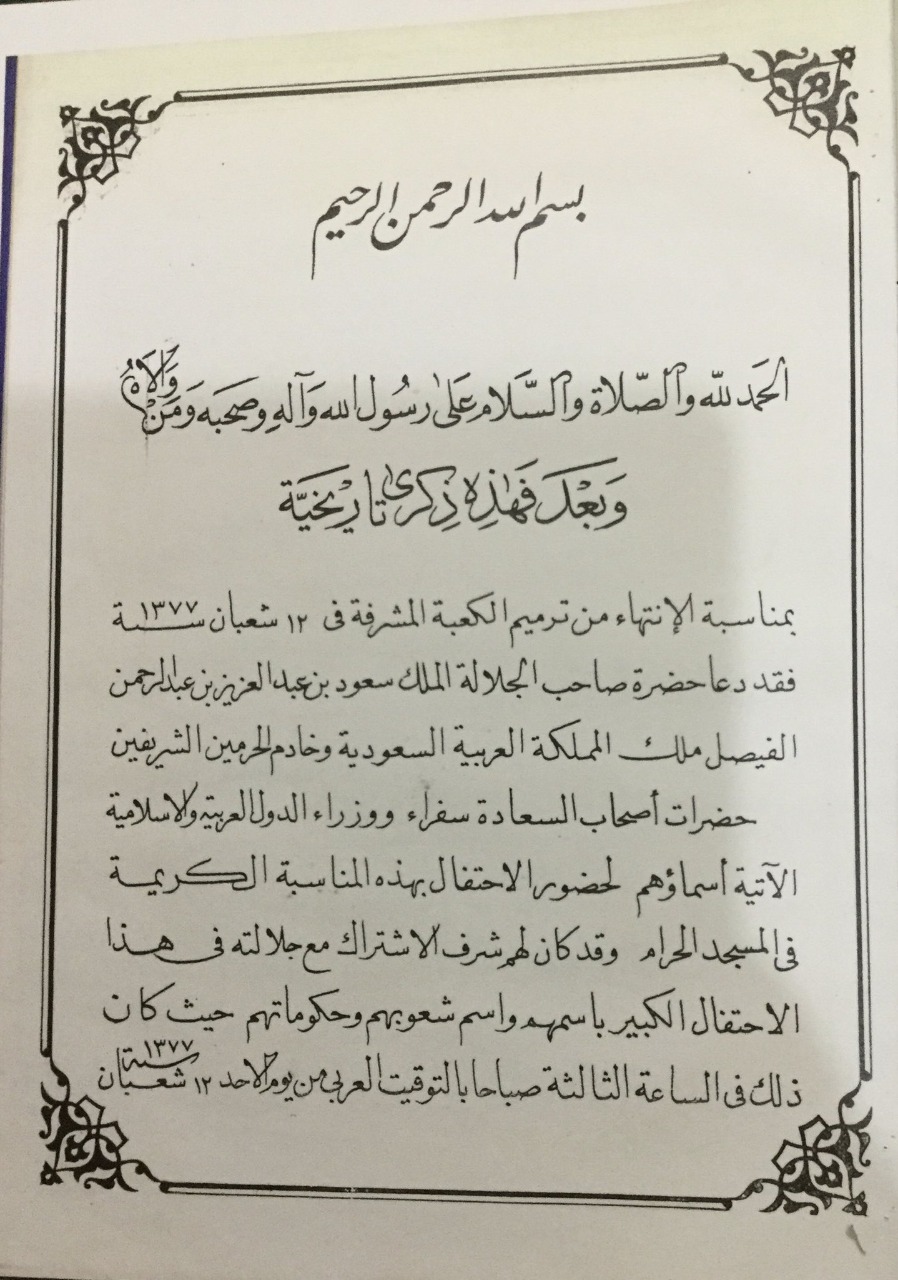 بسم الله الرحمن الرحيم
الحَمد لله والصّلاة والسَّلام عَلى رسُول الله وَآلهِ وصحبَه وَمَنْ وَالاَهُ
وَبَعْدَ فَهٰذِه ذِكرىٰ تاريْخيَّة
بمناسبة الإنتهاء من ترميم الكعبة المشرفة فى ١٢ شعبان سنة ١٣٧٧
فقد دعا حضرة صاحب الجلالة الملك سعود بن عبد العزيز بن عبد الرحمن
الفيصل ملك المملكة العربية السعودية وخادم الحرمين الشريفين
حضرات أصحاب السعادة سفراء ووزراء الدول العربية والاسلامية
الآتية أسماؤهم لحضور الاحتفال بهذه المناسبة الكريمة
فى المسجد الحرام وقد كان لهم شرف الاشتراك مع جلالته فى هذا
الاحتفال الكبير باسمهم واسم شعوبهم وحكوماتهم حيث كان
ذلك فى الساعة الثالثة صباحا بالتوقيت العربى من يوم الاحد ١٢ شعبان سنة ١٣٧٧
١